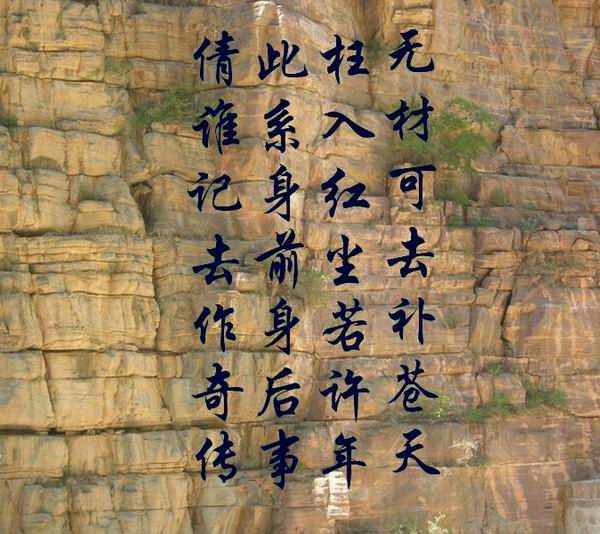 无材可去补苍天
枉入红尘若许年
此系身前身后事
倩谁记去作奇传